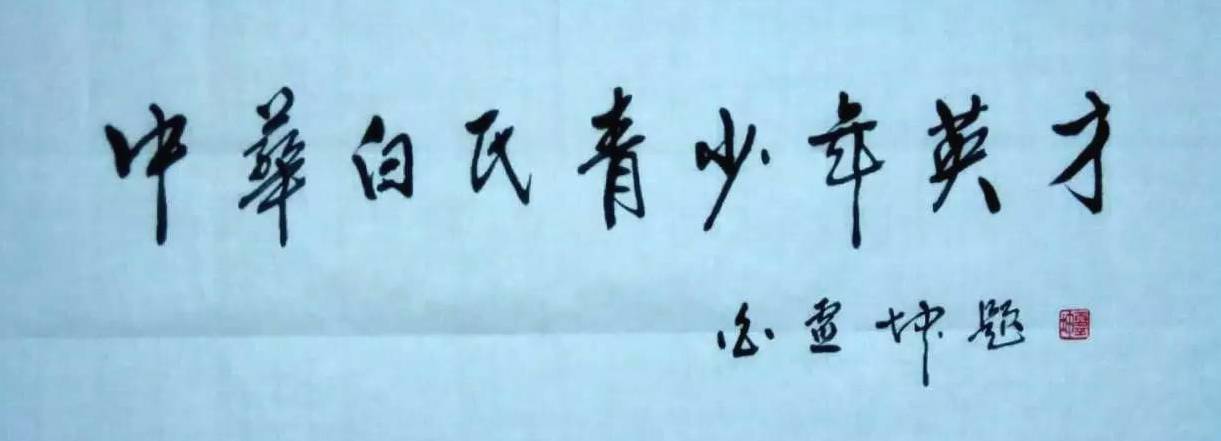 中華白氏青少年英才
白坤题